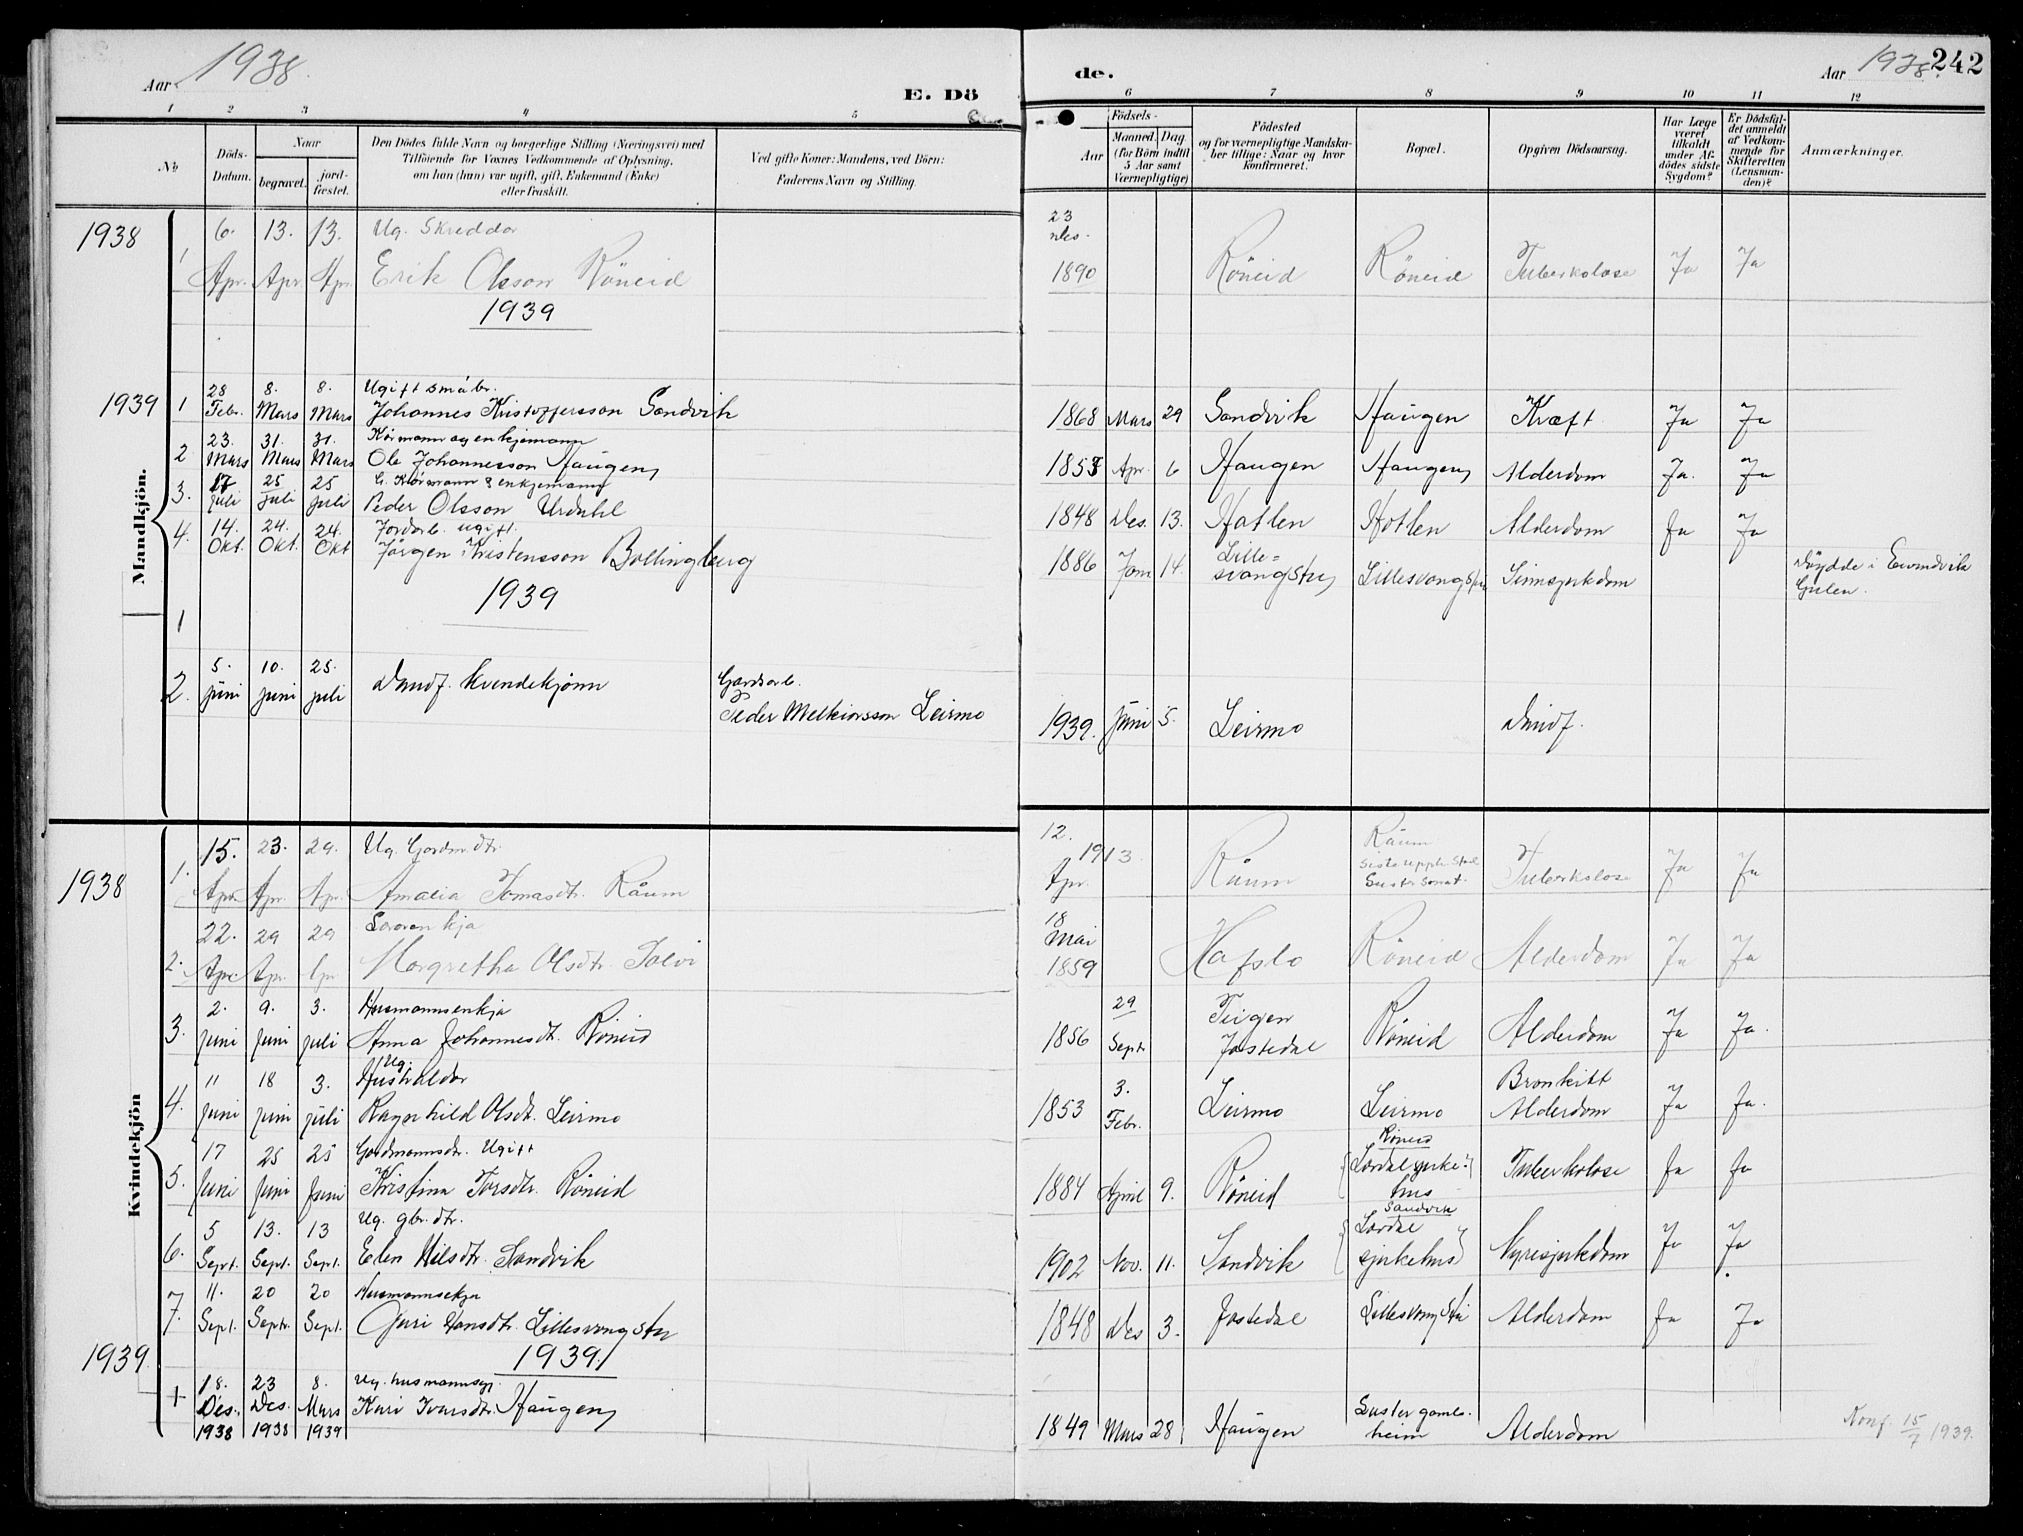 Aar 1938.
E. Dö
de.
Aar 1938. 242
1 2 3 4 5 6 7 8 9 10 11 12
No
Döds-
Datum.
Naar
begravet.
jord-
fæstet.
Den Dödes fulde Navn og borgerlige Stilling (Næringsvei) med
Tilföiende for Voxnes Vedkommende af Oplysning,
om han (hun) var ugift, gift, Enkemand (Enke)
eller fraskilt.
Ved gifte Koner: Mandens, ved Börn:
Faderens Navn og Stilling.
Födsels-
Aar
Maaned. Dag
(for Börn indtil
5 Aar samt
Værnepligtige)
Födested
og for værnepligtige Mandska-
ber tillige: Naar og hvor
konfirmeret.
Bopæl.
Opgiven Dödsaarsag.
Har Læge
været
tilkaldt
under Af-
dödes sidste
Sygdom?
Er Dödsfal-
det anmeldt
af Vedkom-
mende for
Skifteretten
(Lensman-
den)?
Anmærkninger.
Mandkjön.
1938
1 6. Apr. 13. Apr. 13. Apr. Ug. Skreddar
Erik Olsson Röneid 23 des. 1890 Röneid Röneid Tuberkolose Ja Ja
1939
1939 1 28 Febr. 8. Mars 8. Mars Ugift småbr.
Johannes Kristoffersson Sandvik 1868 Mars 29 Sandvik Haugen Kræft Ja Ja
2 23. Mars 31. Mars 31. Mars Kårmann og enkjemann
Ole Johannesson Haugen 1853 Apr. 6 Haugen Haugen Alderdom Ja. Ja
3. 17 juli 25 juli 25 juli G. Kårmann & enkjemann
Peder Olsson Urdahl 1848 Des. 13. Hatlen Hatlen Alderdom Ja Ja
4. 14. Okt. 24. Okt. 24. Okt Jordarb. ugift.
Jörgen Kristensson Bollingberg 1886 Jan 14. Lille=
svangstu Lillesvangstu Sinnsjukdom Döydde i Eivindvik
Gulen.
1939
1
2. 5. juni 10. juni 25. juli Daudf. kvendekjønn Gardarb.
Peder Melkiorsson Leirmo 1939. juni 5. Leirmo Daudf.
Kvindekjön
1938
1. 15. Apr. 23. Apr. 29. Apr. Ug. Gardm.dtr.
Amalia Tomasdtr. Råum 12. Apr. 1913 Råum Råum
siste opph.stad
Luster Sanat. Tuberkolose Ja Ja
2. 22. Apr. 29 Apr. 29 Apr
Margretha Olsdtr. 18 Mai 1859 Hafslo Röneid Alderdom Ja Ja
3. 2. juni 9. juni 3. juli Husmannsenkja
Anna Johannesdt. Röneid 1856 29 Sept. Teigen
Jostedal Röneid Alderdom Ja Ja.
4. 11 juni 18 juni 3. juli Ug.
Hushaldar
Ragnhild Olsdtr. Leirmo 1853 3. Febr. Leirmo Leirmo Bronkitt
Alderdom Ja Ja.
5. 17 Juni 25 Juni 25 Juni Gardmannsdtr. Ugift
Kristina Torsdtr. Röneid 1884 April 9. Röneid Röneid
Lærdal sjuke-
hus Tuberkolose Ja Ja
6. 5 Sept. 13. Sept. 13 Sept. Ug. gbr.dtr.
Elen Nilsdtr. Sandvik 1902 Nov. 11. Sandvik Sandvik
Lærdal
sjukehus Nyresjukdom Ja Ja
7. 11. Sept. 20 Septr. 20 Sept. Husmannsekja
Guri Hansdtr. Lillesvangstu 1848 Des 3. Jostedal Lillesvangstu Alderdom Ja Ja
1939.
1939
1 18. Des. 1938 23 Des. 1938 8. Mars 1939
Kari Ivarsdtr. Haugen 1849 Mars 28 Haugen Luster gamle-
heim Alderdom Konf. 15/7 1939.